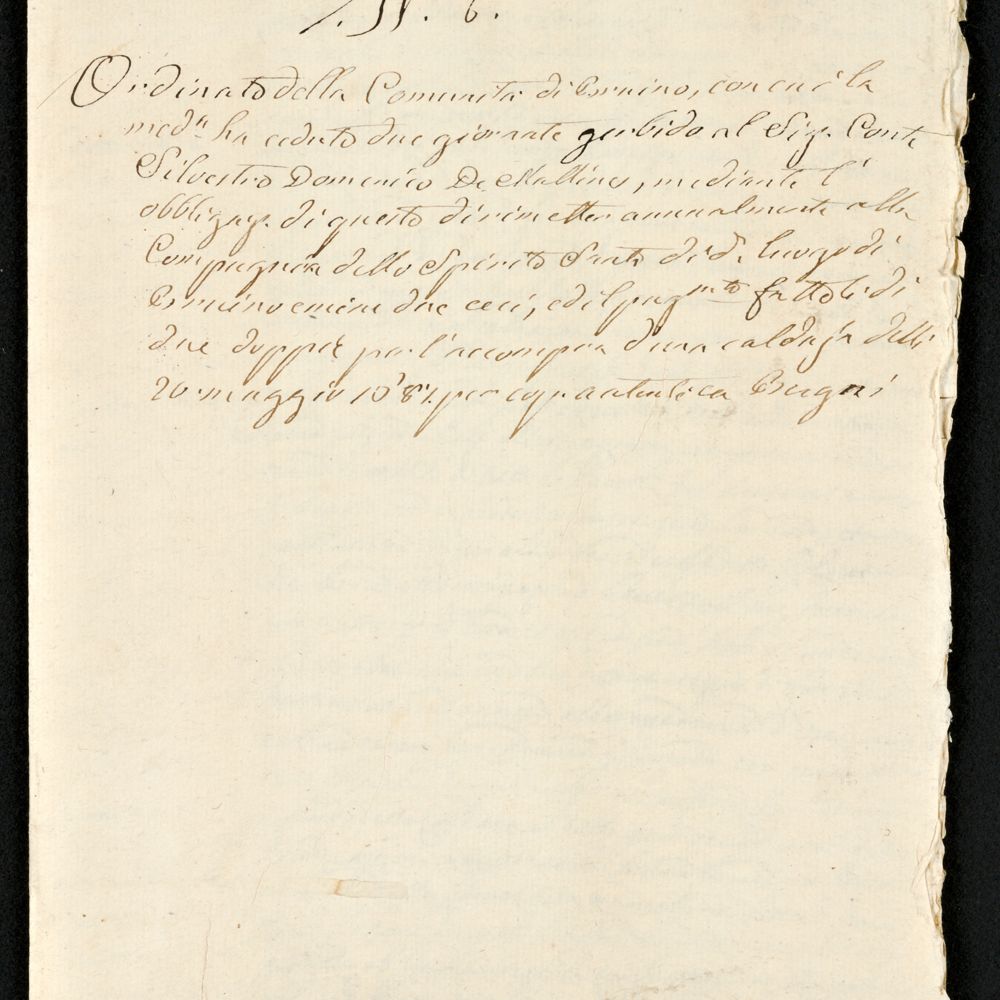 N. 6.
Ordinato della Comunità di Bruino, con cui la
med.ª ha ceduto due giornate gerbido al Sig. Conte
Silvestro Domenico De Mallines, mediante l'
obbligaz. di questo di rimetter annualmente alla
Compagnia dello Spirito Santo di d. luogo di
Bruino emine due ceci, ed il pag.mto fattole di
due doppie per l'accompra d'una caldaja delli
20 maggio per copia autentica Bugni